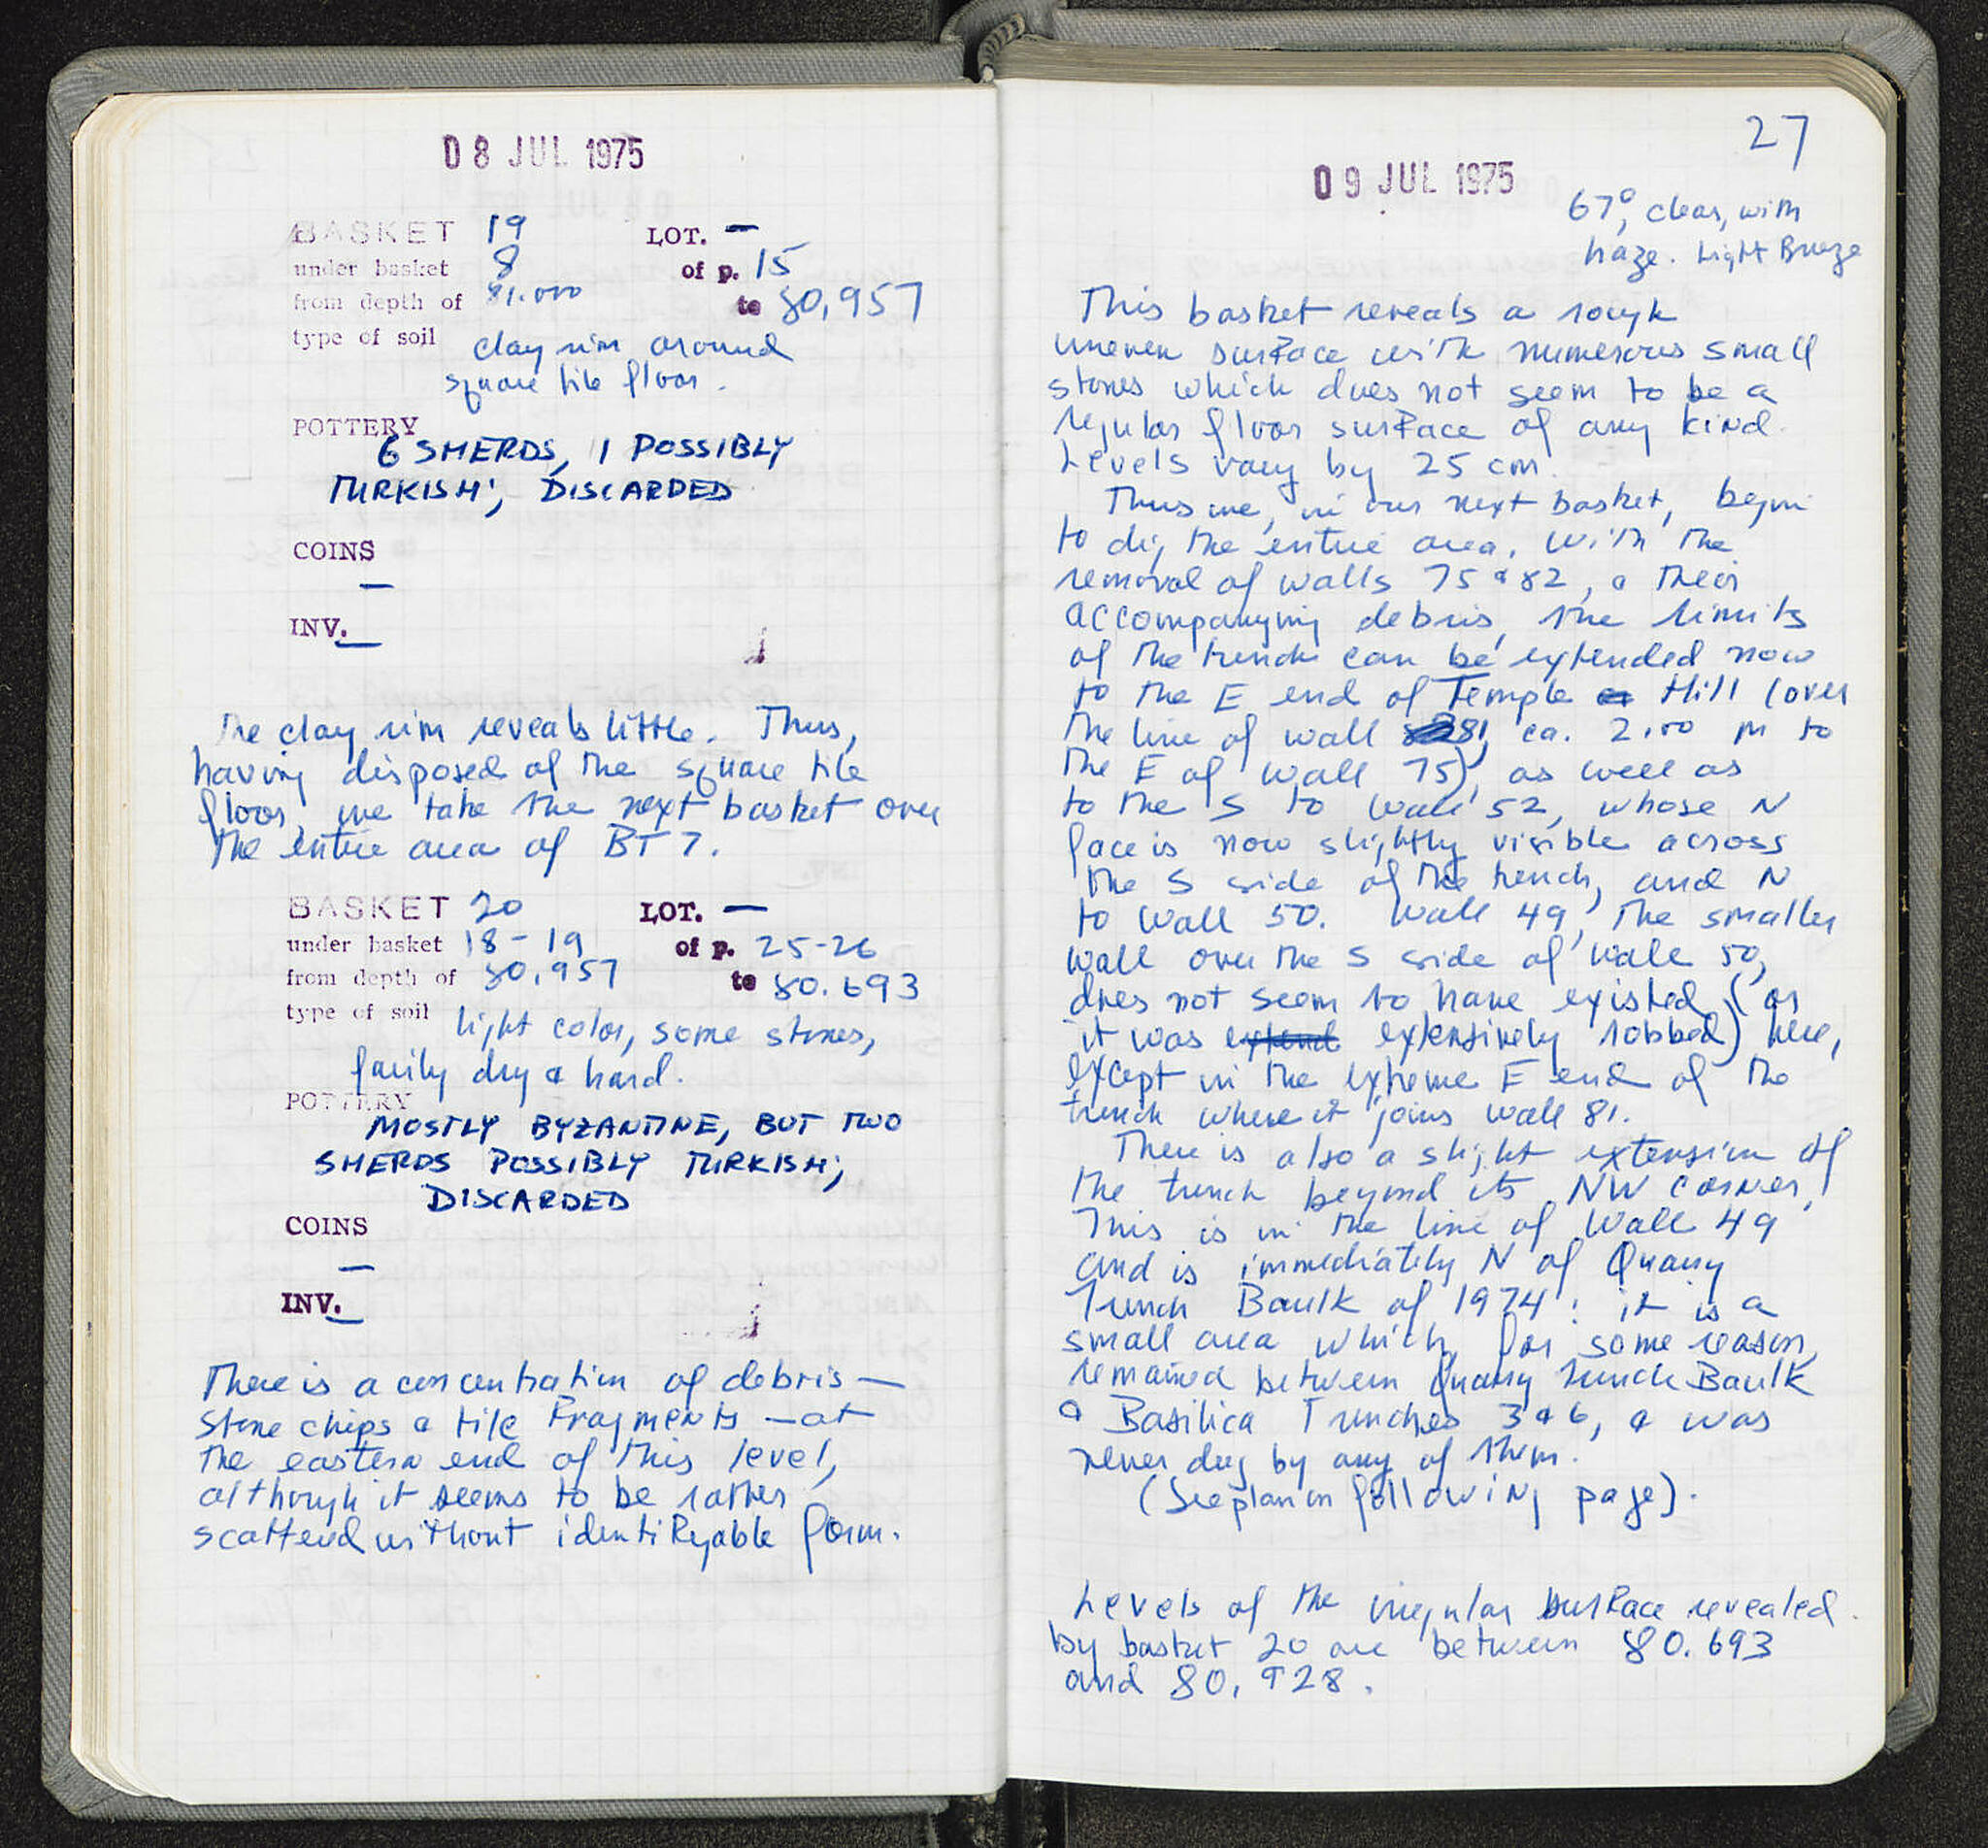 08 JUL 1975
BASKET 19 LOT. —
under basket 8 of p. 15
from depth of 81.000 to 80,957
type of soil clay rim around
square tile floor.
POTTERY
6 SHERDS, 1 POSSIBLY
TURKISH; DISCARDED
COINS
—
INV. —
The clay rim reveals little. Thus,
having disposed of the square tile
floor, we take the next basket over
the entire area of BT 7.
BASKET 20 LOT. —
under basket 18-19 of p. 25-26
from depth of 80,957 to 80.693
type of soil light color, some stones,
fairly dry & hard.
POTTERY
MOSTLY BYZANTINE, BUT TWO
SHERDS POSSIBLY TURKISH;
DISCARDED
COINS
—
INV. —
There is a concentration of debris —
stone chips & tile fragments — at
the eastern end of this level,
although it seems to be rather
scattered without identifyable form.
27
09 JUL 1975
67°, clear, with
haze. Light Breeze
This basket reveals a rough
uneven surface with numerous small
stones which does not seem to be a
regular floor surface of any kind.
Levels vary by 25 cm.
Thus we, in our next basket, begin
to dig the entire area. With the
removal of walls 75 & 82, & their
accompanying debris, the limits
of the trench can be extended now
to the E end of Temple Hill (over
the line of wall 81, ca. 2.00 m to
the E of wall 75), as well as
to the S to wall 52, whose N
face is now slightly visible across
the S side of the trench, and N
to wall 50. Wall 49, the smaller
wall over the S side of wall 50,
does not seem to have existed (or
it was extend extensively robbed) here,
except in the extreme E end of the
trench where it joins wall 81.
There is also a slight extension of
the trench beyond its NW corner.
This is in the line of Wall 49
and is immediately N of Quarry
Trench Baulk of 1974: it is a
small area which, for some reason,
remained between Quarry Trench Baulk
& Basilica Trenches 3 & 6, & was
never dug by any of them.
(See plan on following page).
Levels of the irregular surface revealed
by basket 20 are between 80.693
and 80,928.